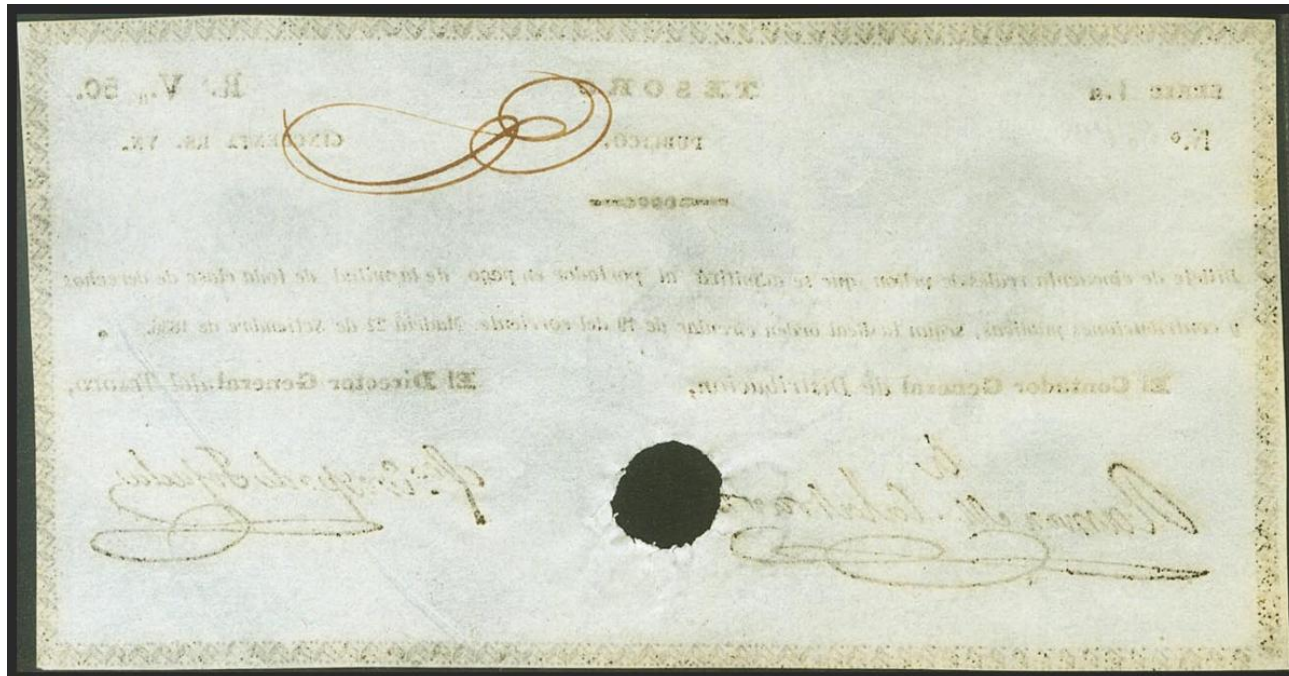 SERIE 1.a TESORO R.s V.n 50.
N.o PUBLICO. CINCUENTA RS. VN.
Billete de cincuenta reales de vellon, que se admitirá al portador en pago de la mitad de toda clase de derechos
y contribuciones públicas, segun la Real orden circular de 19 del corriente. Madrid 22 de setiembre de 1836.
El Contador General de Distribucion, El Director General del Tesoro,